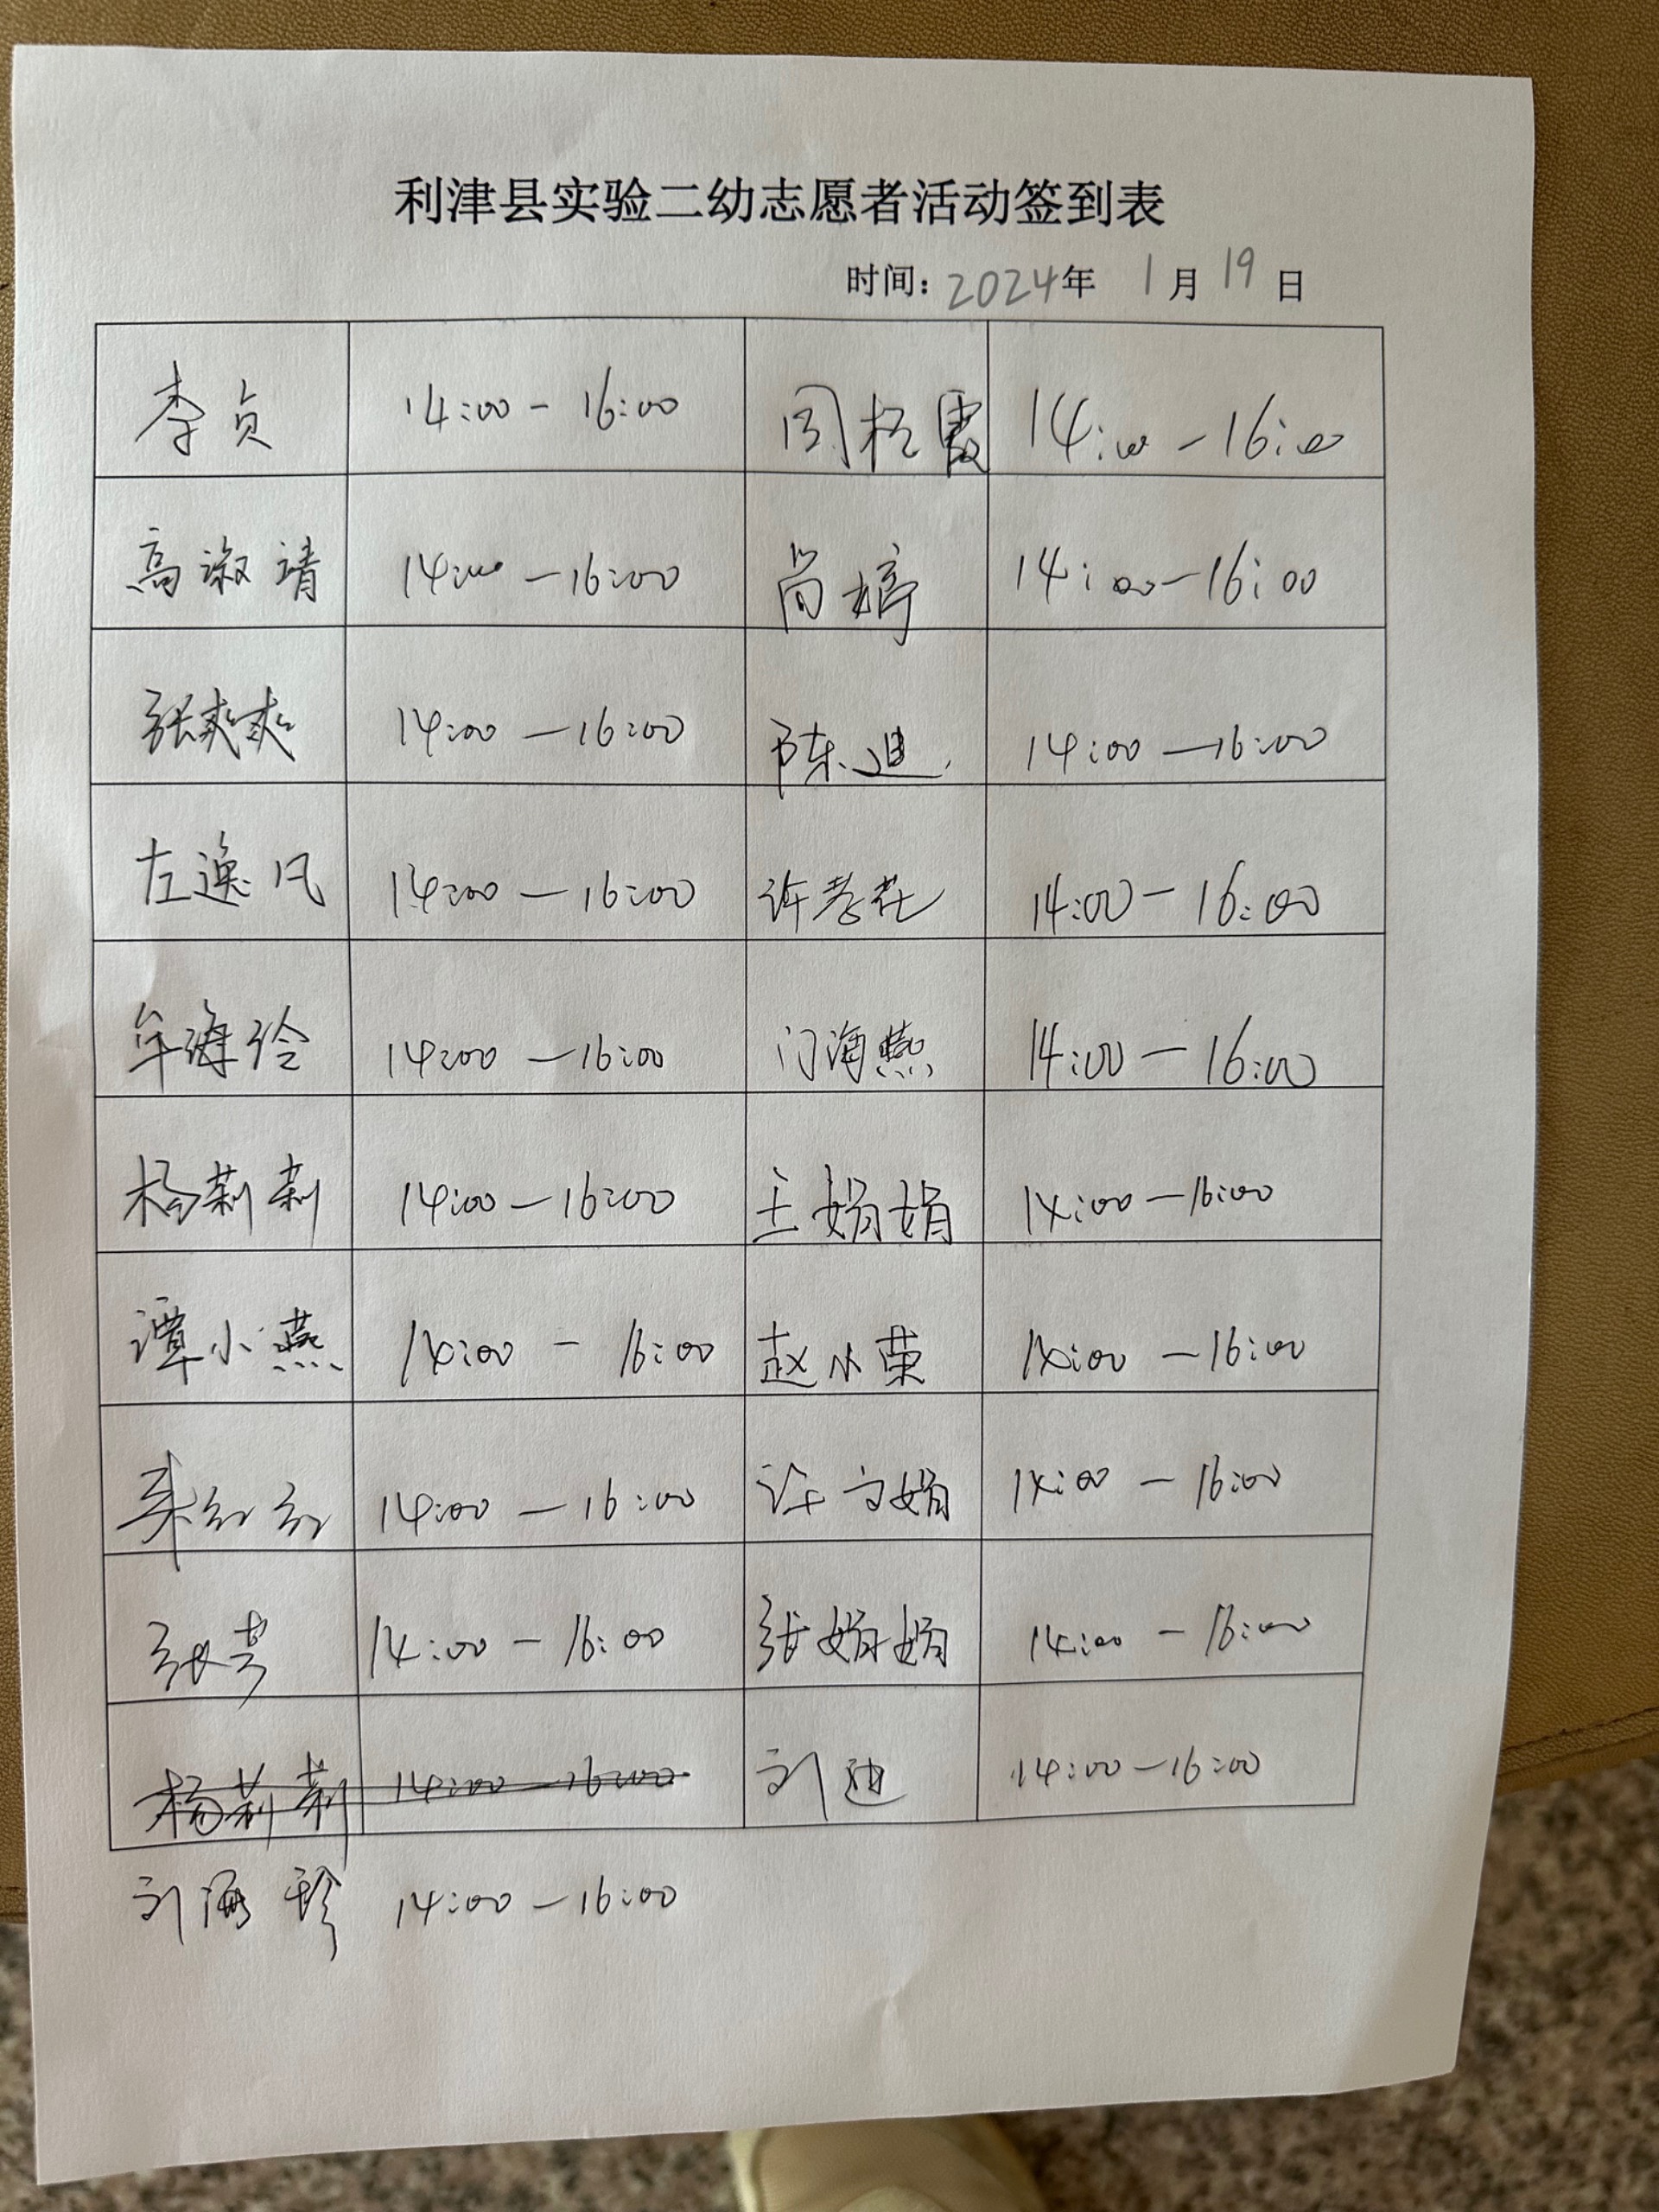 利津县实验二幼志愿者活动签到表
时间：2024年 1月19日
李贞 14:00-16:00 周 霞 14:00-16:00
高淑靖 14:00-16:00 尚婷 14:00-16:00
张爽爽 14:00-16:00 陈迪 14:00-16:00
左逸凡 14:00-16:00 许 14:00-16:00
牟海玲 14:00-16:00 门海燕 14:00-16:00
杨莉莉 14:00-16:00 王娟娟 14:00-16:00
谭小燕 14:00-16:00 赵小荣 14:00-16:00
红红 14:00-16:00 许文娟 14:00-16:00
张芳 14:00-16:00 张娟娟 14:00-16:00
杨莉莉 14:00-16:00 刘迪 14:00-16:00
刘海珍 14:00-16:00